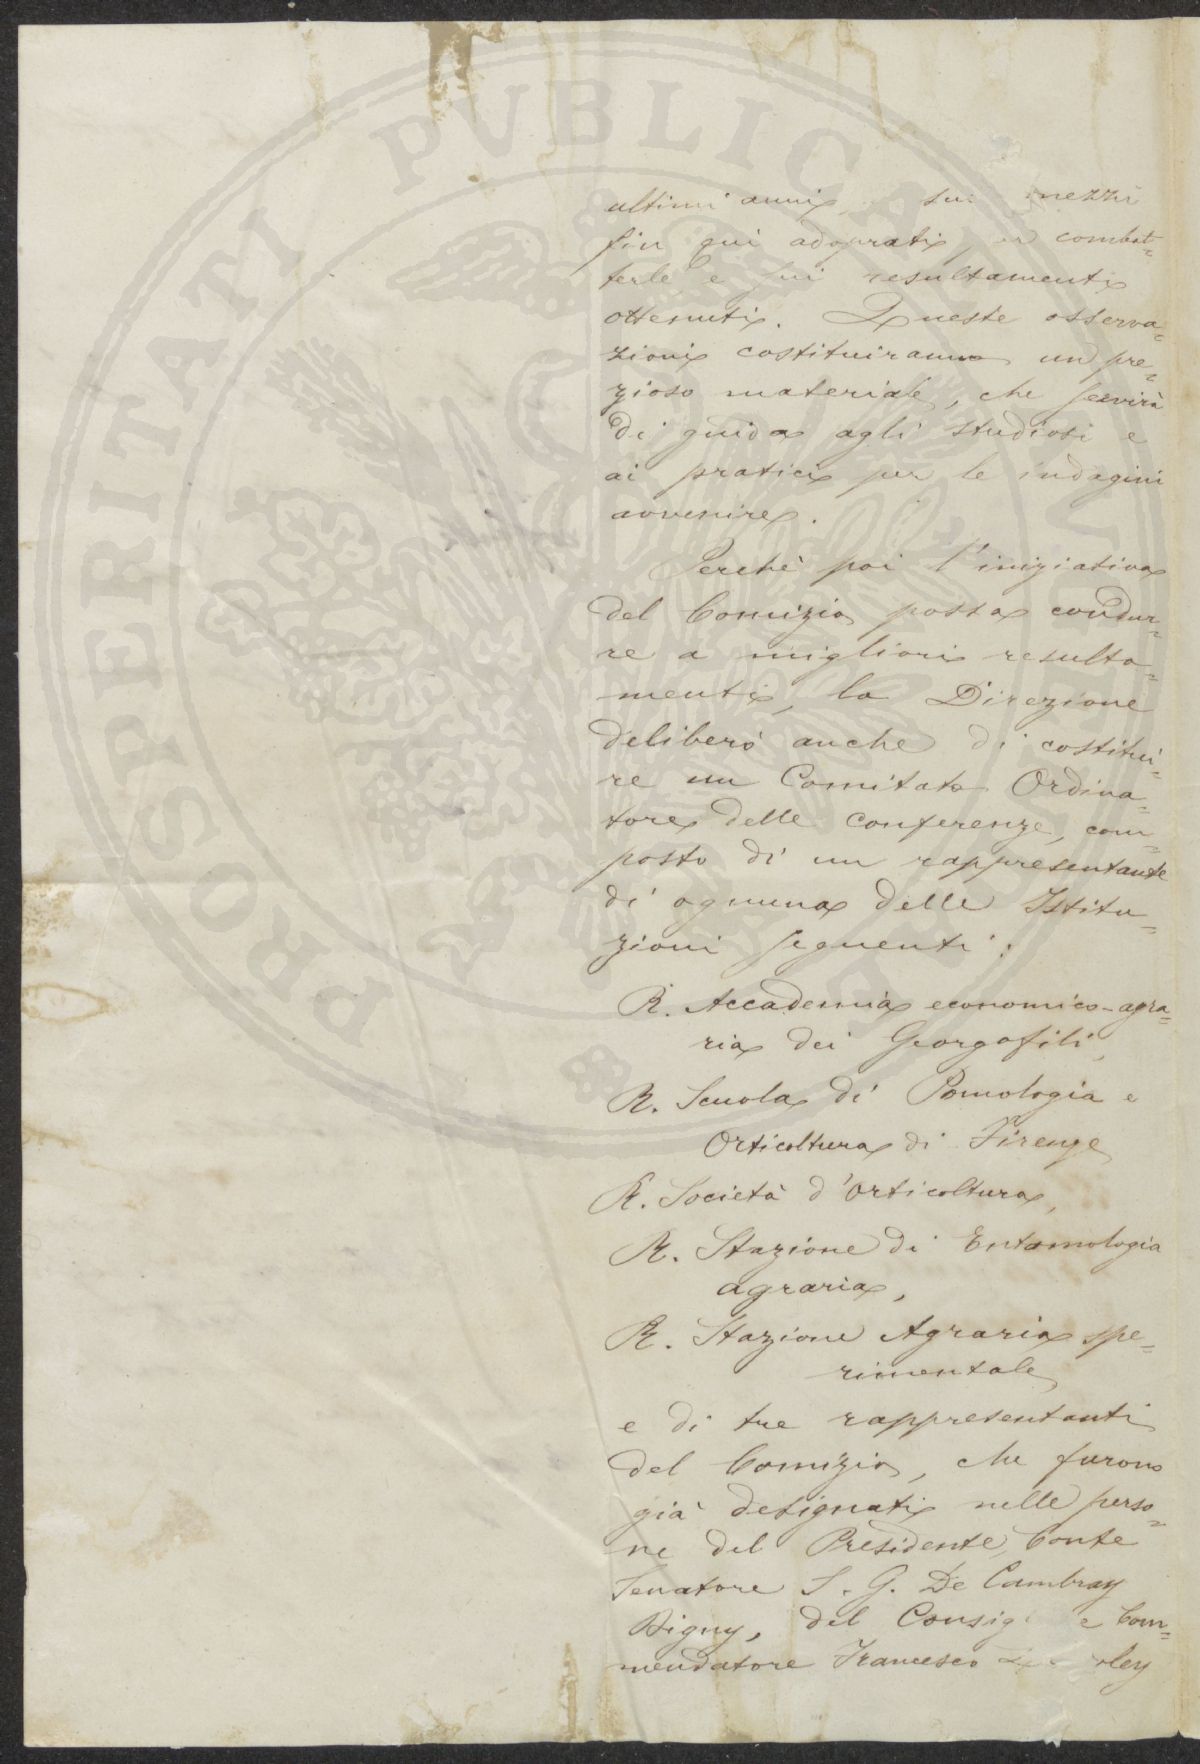 PROSPERITATI PVBLICAE
ultimi anni, sui mezzi
fin qui adoprati per combat=
terle e sui resultamenti
ottenuti. Queste osserva=
zioni costituiranno un pre=
zioso materiale, che servirà
di guida agli studiosi e
ai pratici per le indagini
avvenire.
Perchè poi l'iniziativa
del Comizio possa condur=
re a migliori resulta=
menti, la Direzione
deliberò anche di costitui=
re un Comitato Ordina=
tore delle conferenze, com=
posto di un rappresentante
di ognuna delle Istitu=
zioni seguenti:
R. Accademia economico-agra=
ria dei Georgofili,
R. Scuola di Pomologia e
Orticoltura di Firenze
R. Società d'Orticoltura,
R. Stazione di Entomologia
agraria,
R. Stazione Agraria spe=
rimentale
e di tre rappresentanti
del Comizio, che furono
già designati nelle perso=
ne del Presidente, Conte
Senatore S. G. De Cambray
Digny, del Consig e Com=
mendatore Francesco